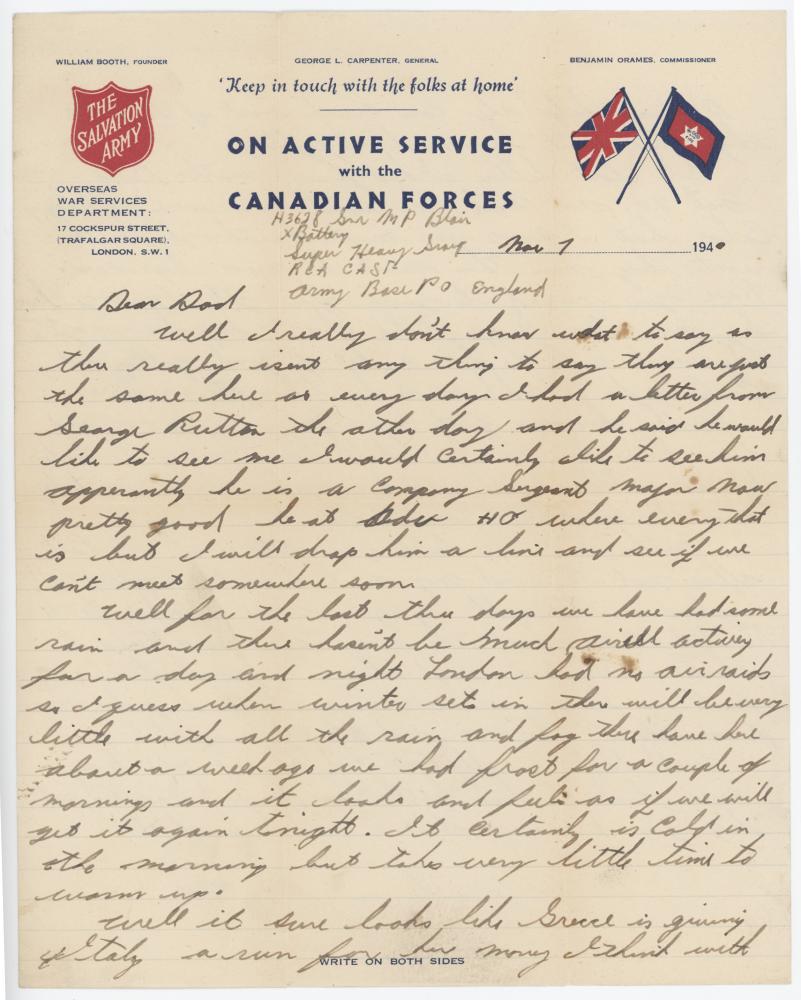 WILLIAM BOOTH, FOUNDER
GEORGE L. CARPENTER, GENERAL
BENJAMIN ORAMES, COMMISSIONER
'Keep in touch with the folks at home'
THE
SALVATION
ARMY
ON ACTIVE SERVICE
with the
CANADIAN FORCES
OVERSEAS
WAR SERVICES
DEPARTMENT:
17 COCKSPUR STREET,
(TRAFALGAR SQUARE),
LONDON. S.W.1
H3628 Gnr M P Blair
X Battery
Super Heavy Group
Nov 7 1940
RCA CASF
Army Base PO England
Dear Dad
Well I really don't know what to say as
there really isent any thing to say they are just
the same here as every day I had a letter from
George Rutton the other day and he said he would
like to see me I would certainly like to see him
apperantly he is a Company Sergeant major now
pretty good he at HQ where every that
is but I will drop him a line and see if we
can't meet somewhere soon
Well for the last three days we have had some
rain and there hasent be much activey
for a day and night London had no air raids
so I guess when winter sets in there will be very
little with all the rain and fog they have here
about a week ago we had frost for a couple of
mornings and it looks and feels as if we will
get it again tonight. It certainly is cold in
the morning but takes very little time to
warm up.
Well it sure looks like Greece is giving
Italy a run for her money I think with
WRITE ON BOTH SIDES